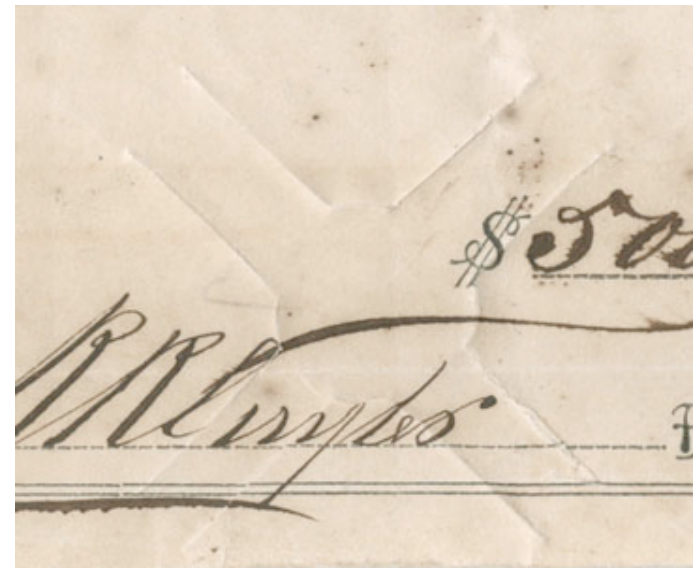 $500
R R Cuyler